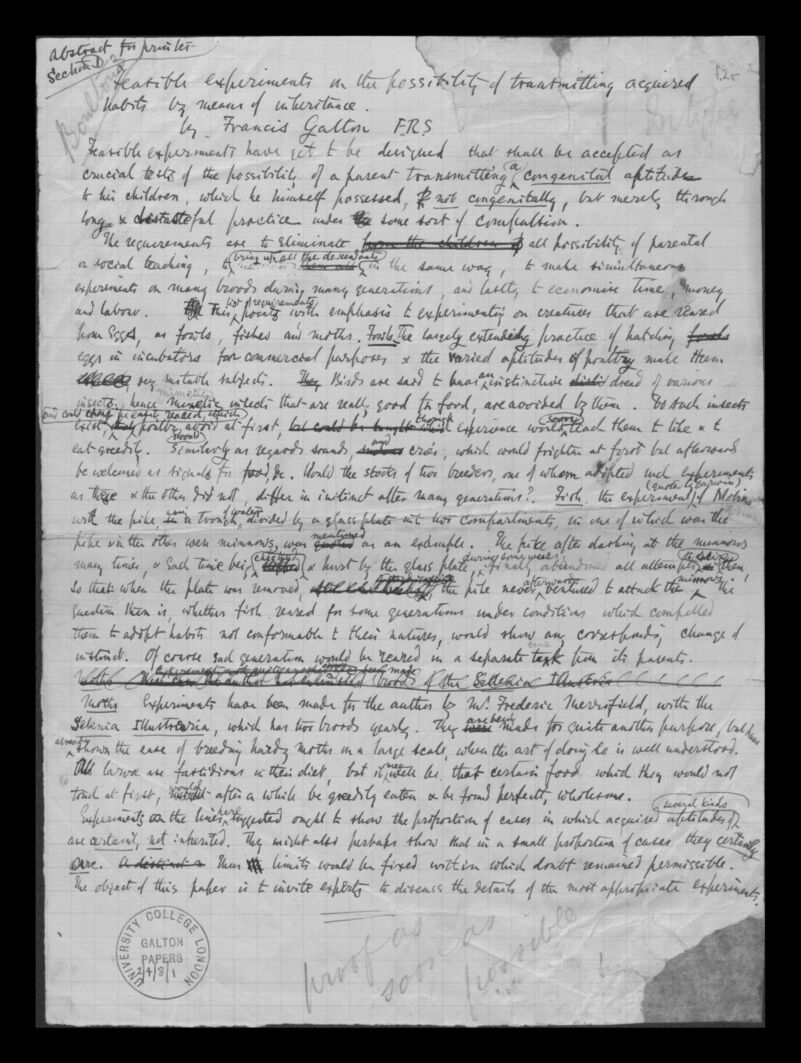 Abstract for printer
Section D
Feasible experiments on the possibility of transmitting acquired
habits by means of inheritance.
by Francis Galton F.R.S
Feasible experiments have yet to be designed that shall be accepted as
crucial tests of the possibility of a parent transmitting a congenital aptitude
to his children, which he himself possessed, not congenitally, but merely through
long & distasteful practice under some sort of compulsion.
The requirements are to eliminate from the children of all possibility of parental
or social teaching, to bring up all the descendants in the same way, to make simultaneous
experiments on many broods during many generations, and lastly to economise time, money
and labour. This list of requirements points with emphasis to experimenting on creatures that are reared
from Eggs, as fowls, fishes and moths. Fowls. The largely extending practice of hatching fowls
eggs in incubators for commercial purposes & the varied aptitudes of poultry make them
very suitable subjects. They Birds are said to have an instinctive dread of various
insects, hence mimetic insects that are really good for food, are avoided by them. Do such insects
exist, and could they be easily reared, which poultry avoid at first, but could be taught which though experience would soon teach them to like & to
eat greedily. Similarly as regards sounds, and cries, which would frighten at first but afterwards
be welcomed as signals for food, &c. Would the stocks of two breeders, one of whom adopted such experiments
as these & the other did not, differ in instinct after many generations? Fish. the experiment (quoted by Darwin) of Möbius
with the pike in a trough of water, divided by a glass plate into two compartments, in one of which was the
pike in the other were minnows, was mentioned as an example. The pike after dashing at the minnows
many times, & each time being checked & hurt by the glass plate, during some weeks, finally abandoned all attempts to seize them,
so that when the plate was removed, the pike never afterwards ventured to attack the minnows. The
question then is, whether fish reared for some generations under conditions which compelled
them to adopt habits not conformable to their natures, would show any corresponding change of
instinct. Of course each generation would be reared in a separate tank from its parents.
Moths Experiments have been made for the author by Mr. Frederic Merrifield, with the
Selenia Illustraria, which has two broods yearly. They are being made for quite another purpose, but have
already shown the ease of breeding hardy moths on a large scale, when the art of doing so is well understood.
All larvæ are fastidious in their diet, but it may well be that certain food which they would not
touch at first, would after a while be greedily eaten & be found perfectly wholesome.
Experiments on the lines here suggested ought to show the proportion of cases in which acquired aptitudes of several kinds
are certainly not inherited. They might also perhaps show that in a small proportion of cases they certainly
are. Thus limits would be fixed within which doubt remained permissible.
The object of this paper is to invite experts to discuss the details of the most appropriate experiments.
proof as
soon as
possible
UNIVERSITY COLLEGE LONDON
GALTON
PAPERS
2/4/8/1